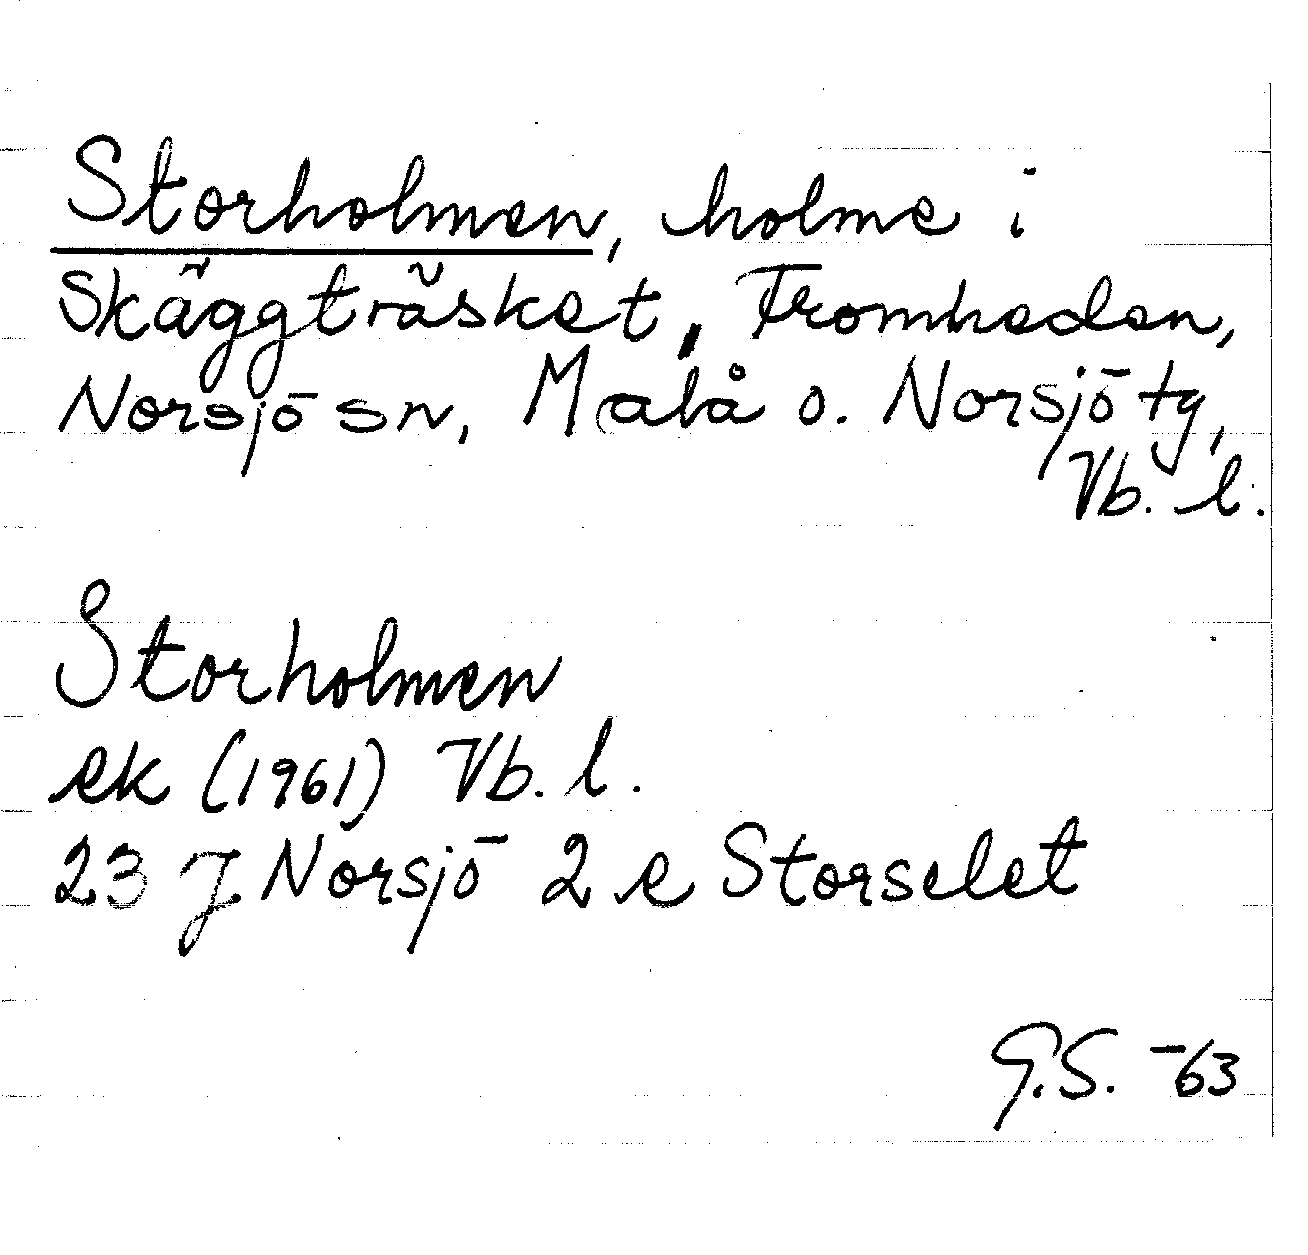 Storholmen, holme i
Skäggträsket, Fromheden,
Norsjö sn, Malå o. Norsjö tg,
Vb. l.
Storholmen
ek (1961) Vb. l.
23 J Norsjö 2 e Storselet
G.S. -63